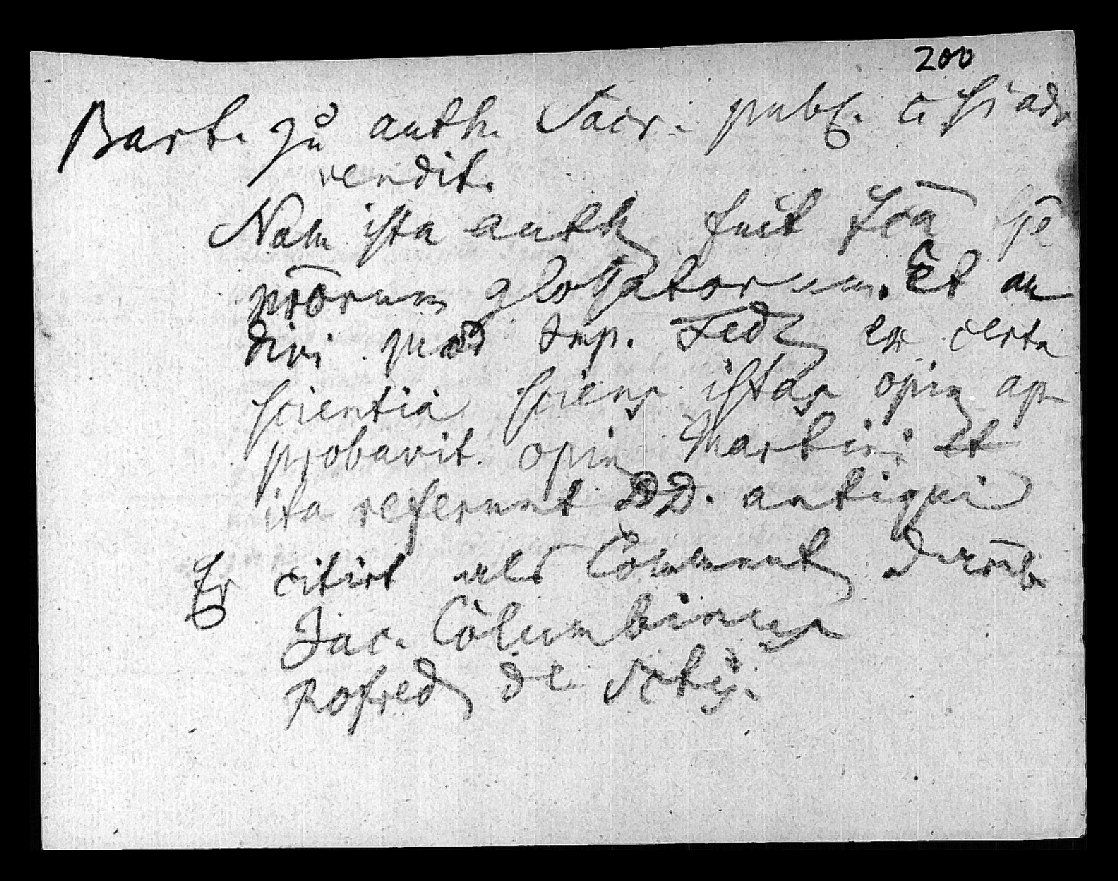 200
Bart. zu auth. Sacr. publ. c si adv
vendit.
Nam ista auth fuit fcā
prōrum glossatorum. Et au
divi quod Imp. Fed ex certa
scientia sciens istas opin ap
probavit opin Martini et
ita referunt DD. antiqui
Er citirt als Comment
Jac. Columbinus
Rofred de